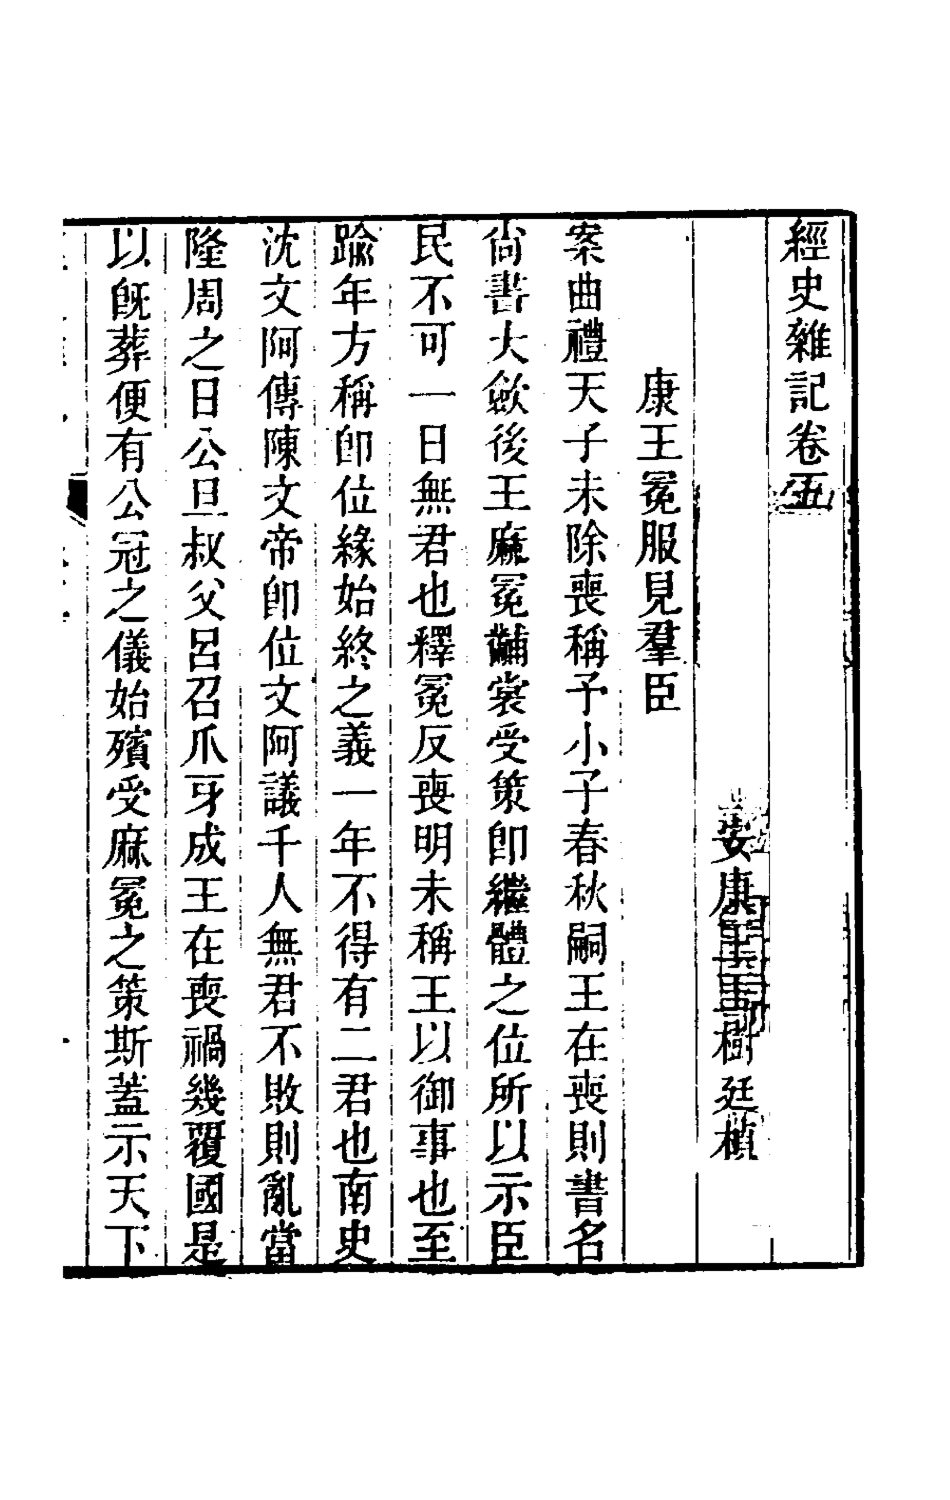 經史雜記卷五
安康王玉樹廷楨
康王冕服見羣臣
案曲禮天子未除喪稱予小子春秋嗣王在喪則書名
尚書大歛後王麻冕黼裳受策卽繼體之位所以示臣
民不可一日無君也釋冕反喪明未稱王以御事也至
踰年方稱卽位緣始終之義一年不得有二君也南史
沈文阿傳陳文帝卽位文阿議千人無君不敗則亂當
隆周之日公旦叔父呂召爪牙成王在喪禍幾覆國是
以旣葬便有公冠之儀始殯受麻冕之策斯蓋示天下